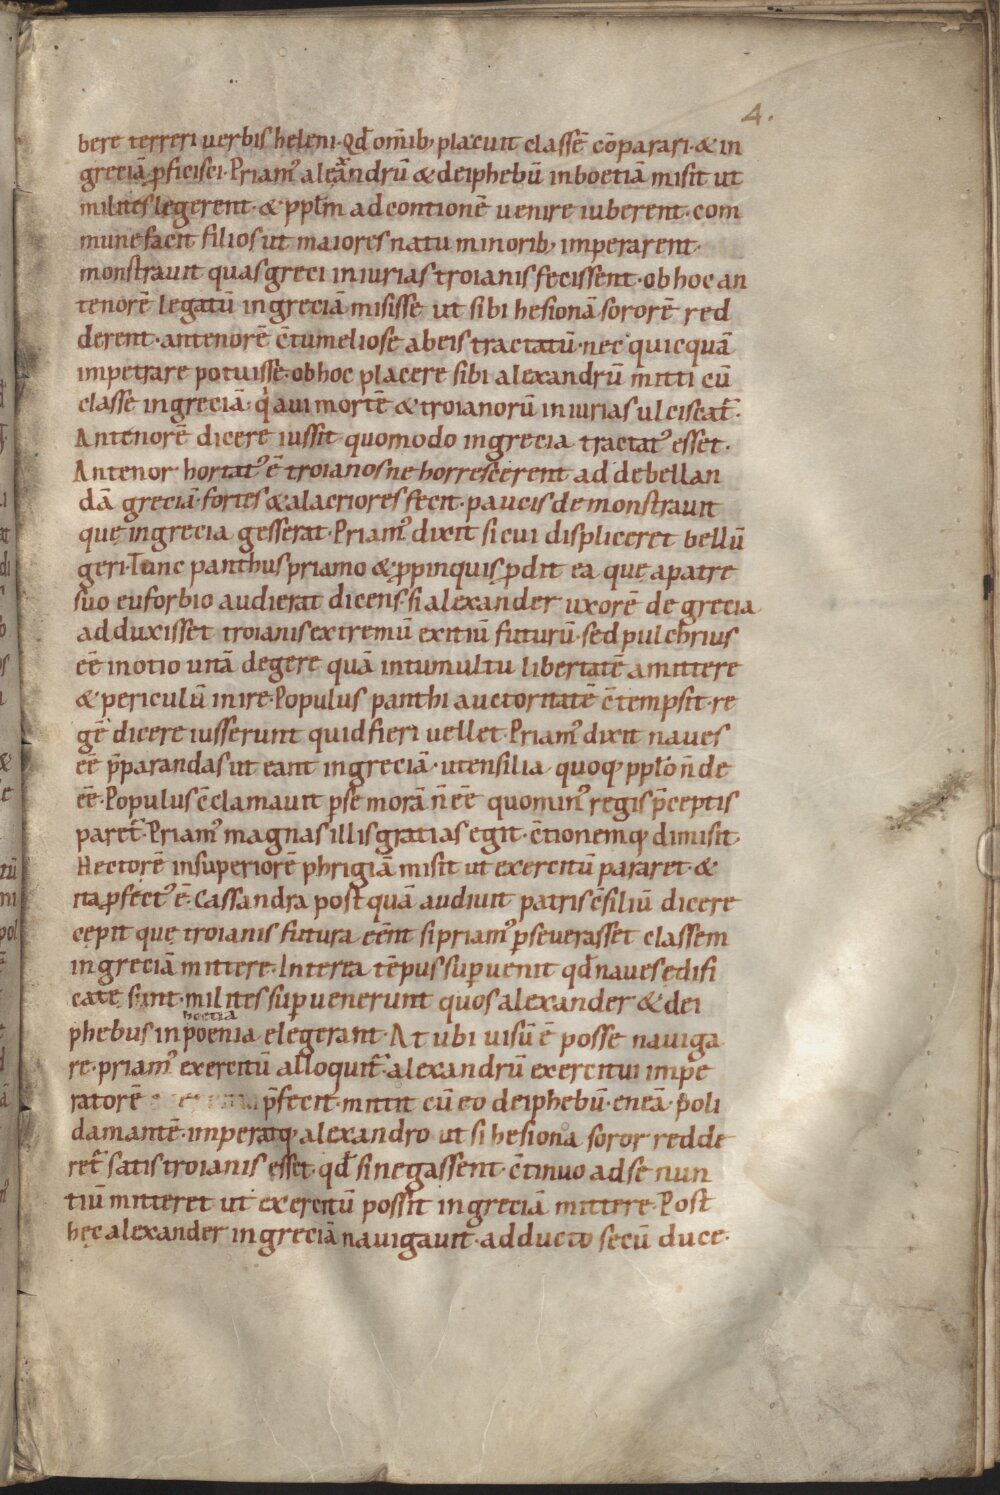 4.
bere terreri uerbis heleni· Qđ om̄ib; placuit classē cōparari· & in
greciā ꝓficisci· Priamꝰ alexandrū & deiphebū in boetiā misit ut
milites legerent· & ppłm ad contionē uenire iuberent· com
mune facit filios ut maiores natu minorib; imperarent·
monstrauit quas greci iniurias troianis fecissent· ob hoc an
tenorē legatū in greciā misisse ut sibi hesionā sororē red
derent· antenorē c̄tumeliose ab eis tractatū· nec quicquā
impetrare potuisse· ob hoc placere sibi alexandrū mitti cū
classe in greciā· qͥ aui mortē & troianorū iniurias ulciscat᷑·
Antenorē dicere iussit quomodo in grecia tractatꝰ esset·
Antenor hortatꝰ ē troianos ne horrescerent ad debellan
dā greciā· fortes & alacriores fecit· paucis demonstrauit
quę in grecia gesserat· Priamꝰ dixit si cui displiceret bellū
geri· Tunc panthus priamo & ꝓpinquis ꝓdit ea quę a patre
suo euforbio audierat dicens· si alexander uxorē de grecia
adduxisset troianis extremū exitiū futurū· sed pulchrius
eē in otio uitā degere quā in tumultu libertatē amittere
& periculū inire· Populus panthi auctoritatē c̄tempsit· re
gē dicere iusserunt quid fieri uellet· Priamꝰ dixit naues
eē p̄parandas ut eant in greciā· utensilia quoq; ppło n̄ de
eē· Populus c̄clamauit ꝑ se morā n̄ eē quominꝰ regis p̄ceptis
paret᷑· Priamꝰ magnas illis gratias egit· c̄tionemq; dimisit·
Hectorē in superiorē phrigiā misit ut exercitū pararet· &
ita ꝓfectꝰ ē· Cassandra postquā audiuit patris c̄siliū dicere
cępit quę troianis futura eēnt si priamꝰ ꝑseuerasset classem
in greciā mittere· Interea tēpus suꝑuenit qđ naues edifi
cate sunt· milites suꝑuenerunt quos alexander & dei
boetia
phebus in poenia elegerant· At ubi uisū ē posse nauiga
re· priamꝰ exercitū alloquit᷑· alexandrū exercitui impe
ratorē p̄fecit· mittit cū eo deiphebū· eneā· poli
damantē· imperatq; alexandro ut si hesiona soror redde
ret᷑ satis troianis esset· qđ si negassent· c̄tinuo ad se nun
tiū mitteret ut exercitū possit in greciā mittere· Post
hęc alexander in greciā nauigauit· adducto secū duce·